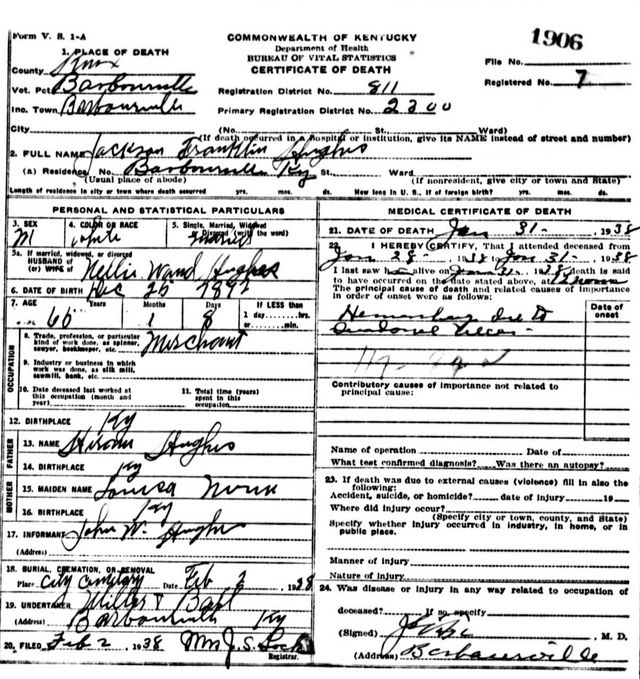 Form V. S. 1-A
COMMONWEALTH OF KENTUCKY
Department of Health
BUREAU OF VITAL STATISTICS
CERTIFICATE OF DEATH
1906
File No.
Registered No. 7
1. PLACE OF DEATH
County Knox
Vot. Pct. Barbourville
Inc. Town Barbourville
Registration District No. 811
Primary Registration District No. 2300
City (No. St. Ward)
(If death occurred in a hospital or institution, give its NAME instead of street and number)
2. FULL NAME Jackson Franklin Hughes
(a) Residence No. Barbourville Ky St. Ward
(Usual place of abode) (If nonresident, give city or town and State)
Length of residence in city or town where death occurred yrs. mos. ds. How long in U. S., if of foreign birth? yrs. mos. ds.
PERSONAL AND STATISTICAL PARTICULARS
3. SEX
M
4. COLOR OR RACE
white
5. Single, Married, Widowed or Divorced (write the word)
married
5a. If married, widowed, or divorced
HUSBAND of
(or) WIFE of Nellie Hughes
6. DATE OF BIRTH Dec
7. AGE Years Months Days If LESS than
1 day hrs.
or min.
1 8
OCCUPATION
8. Trade, profession, or particular
kind of work done, as spinner,
sawyer, bookkeeper, etc. Merchant
9. Industry or business in which
work was done, as silk mill,
sawmill, bank, etc.
10. Date deceased last worked at
this occupation (month and
year)
11. Total time (years)
spent in this
occupation
12. BIRTHPLACE Ky
FATHER
13. NAME Hiram Hughes
14. BIRTHPLACE Ky
MOTHER
15. MAIDEN NAME Louisa
16. BIRTHPLACE Ky
17. INFORMANT John W. Hughes
(Address)
18. BURIAL, CREMATION, OR REMOVAL
Place City Cemetery Date Feb 2, 1938
19. UNDERTAKER Miller &
(Address) Barbourville Ky
20. FILED Feb 2 1938 Mrs J. S. Lock
Registrar.
MEDICAL CERTIFICATE OF DEATH
21. DATE OF DEATH Jan 31- 1938
22. I HEREBY CERTIFY, That I attended deceased from
Jan 28- 1938 to Jan 31- 1938
I last saw h alive on Jan 31- 1938 death is said
to have occurred on the date stated above, at
The principal cause of death and related causes of importance
in order of onset were as follows:
Date of
onset
Hemorrhage due to
Duodenal ulcer
Contributory causes of importance not related to
principal cause:
Name of operation Date of
What test confirmed diagnosis? Was there an autopsy?
23. If death was due to external causes (violence) fill in also the
following:
Accident, suicide, or homicide? date of injury 19
Where did injury occur?
(Specify city or town, county, and State)
Specify whether injury occurred in industry, in home, or in
public place.
Manner of injury
Nature of injury
24. Was disease or injury in any way related to occupation of
deceased? If so, specify
(Signed) M. D.
(Address) Barbourville